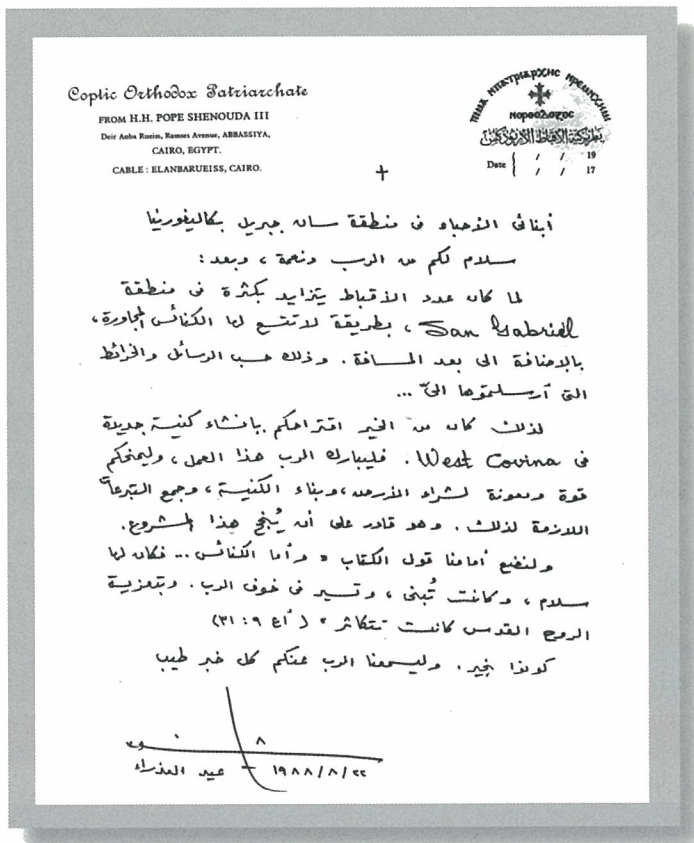 Coptic Orthodox Patriarchate
FROM H.H. POPE SHENOUDA III
Deir Anba Rueiss, Ramses Avenue, ABBASSIYA,
CAIRO, EGYPT.
CABLE : ELANBARUEISS, CAIRO.
بطريركية الأقباط الأرثوذكس
Date / / 19
/ / 17
أبنائى الأحباء فى منطقة سان جبريل بكاليفورنيا
سلام لكم من الرب ونعمة ، وبعد :
لما كان عدد الأقباط يتزايد بكثرة فى منطقة
San Gabriel ، بطريقة لا تتسع لها الكنائس المجاورة ،
بالإضافة الى بعد المسافة . وذلك حسب الرسائل والخرائط
التى أرسلتموها الىّ ...
لذلك كان من الخير اقتراحكم بإنشاء كنيسة جديدة
فى West Covina . فليبارك الرب هذا العمل ، وليمنحكم
قوة ومعونة لشراء الأرض ، وبناء الكنيسة ، وجمع التبرعات
اللازمة لذلك . وهو قادر على أن يُنجح هذا المشروع .
ولنضع أمامنا قول الكتاب " وأما الكنائس ... فكان لها
سلام ، وكانت تُبنى ، وتسير فى خوف الرب . وبتعزية
الروح القدس كانت تتكاثر " ( أع ٩ : ٣١ )
كونوا بخير . وليسمعنا الرب عنكم كل خبر طيب
٢٢/٨/١٩٨٨ - عيد العذراء